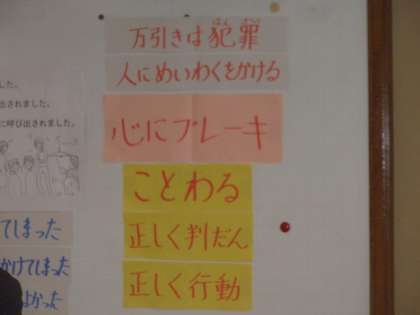 万引きは犯罪
人にめいわくをかける
心にブレーキ
ことわる
正しく判だん
正しく行動
ました。
出されました。
に呼び出されました。
てしまった
かけてしまった
よかった